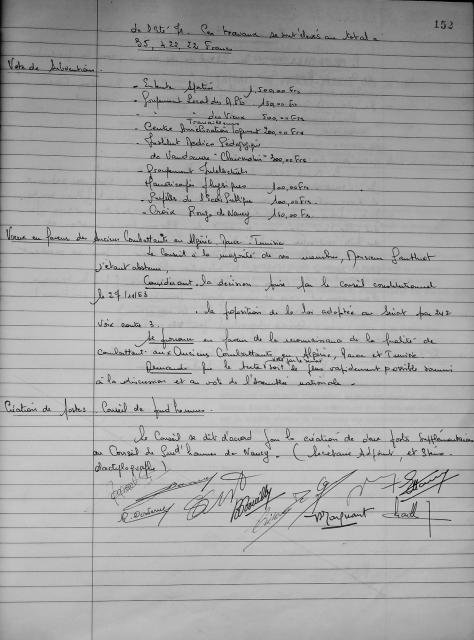 152
Ces travaux se sont élevés au total
35,422,22 Francs
Vote de Subventions.
- Entente 1,500,00 Frs
- Groupement Local des 150,00 Frs
- " - des Vieux Travailleurs 500,00 Frs
- Centre Amélioration Logement 200,00 Frs
- Institut Medico Pédagogique
de Vandoeuvre "Claurmatin" 300,00 Frs
- Groupement Intellectuels
Handicapés Physiques 100,00 Frs
- Pupilles de l'Ecole Publique 100,00 Frs
- Croix Rouge de Nancy 150,00 Frs.
Voeux en faveur des Anciens Combattants en Algérie Maroc - Tunisie
Le Conseil à la majorité de ses membres, Monsieur Gauthiet
s'étant abstenu,
Considérant la décision prise par le Conseil constitutionnel
le
- la proposition de loi adoptée au Sénat par 242
voix contre 3.
Se prononce en faveur de la reconnaissance de la qualité de
combattant aux Anciens Combattants en Algérie, Maroc et Tunisie.
Demande que le texte soit le plus rapidement possible soumis
à la discussion et au vote de l'Assemblée nationale.
Création de postes. Conseil de Prud'hommes.
Le Conseil se dit d'accord pour la création de deux postes supplémentaires
au Conseil de Prud'hommes de Nancy. (Secrétaire Adjoint, et Sténo
dactylographe)